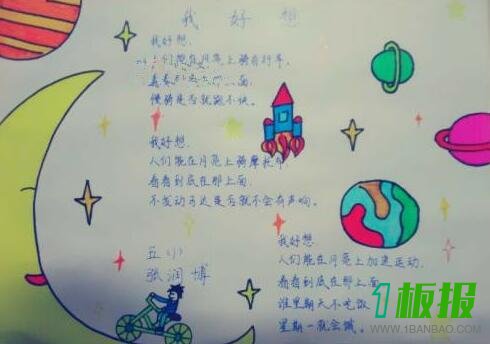 我 好 想
我好想
人们能在月亮上骑自行车
看看
慢骑是否就跑不快。
我好想
人们能在月亮上骑摩托车
看看到底在那上面
不发动马达是否就不会有声响。
五(1)
张润博
我好想
人们能在月亮上加速运动.
看看到底在那上面
谁星期天不吃饭
星期一就会饿。
1板报
WWW.1BANBAO.COM